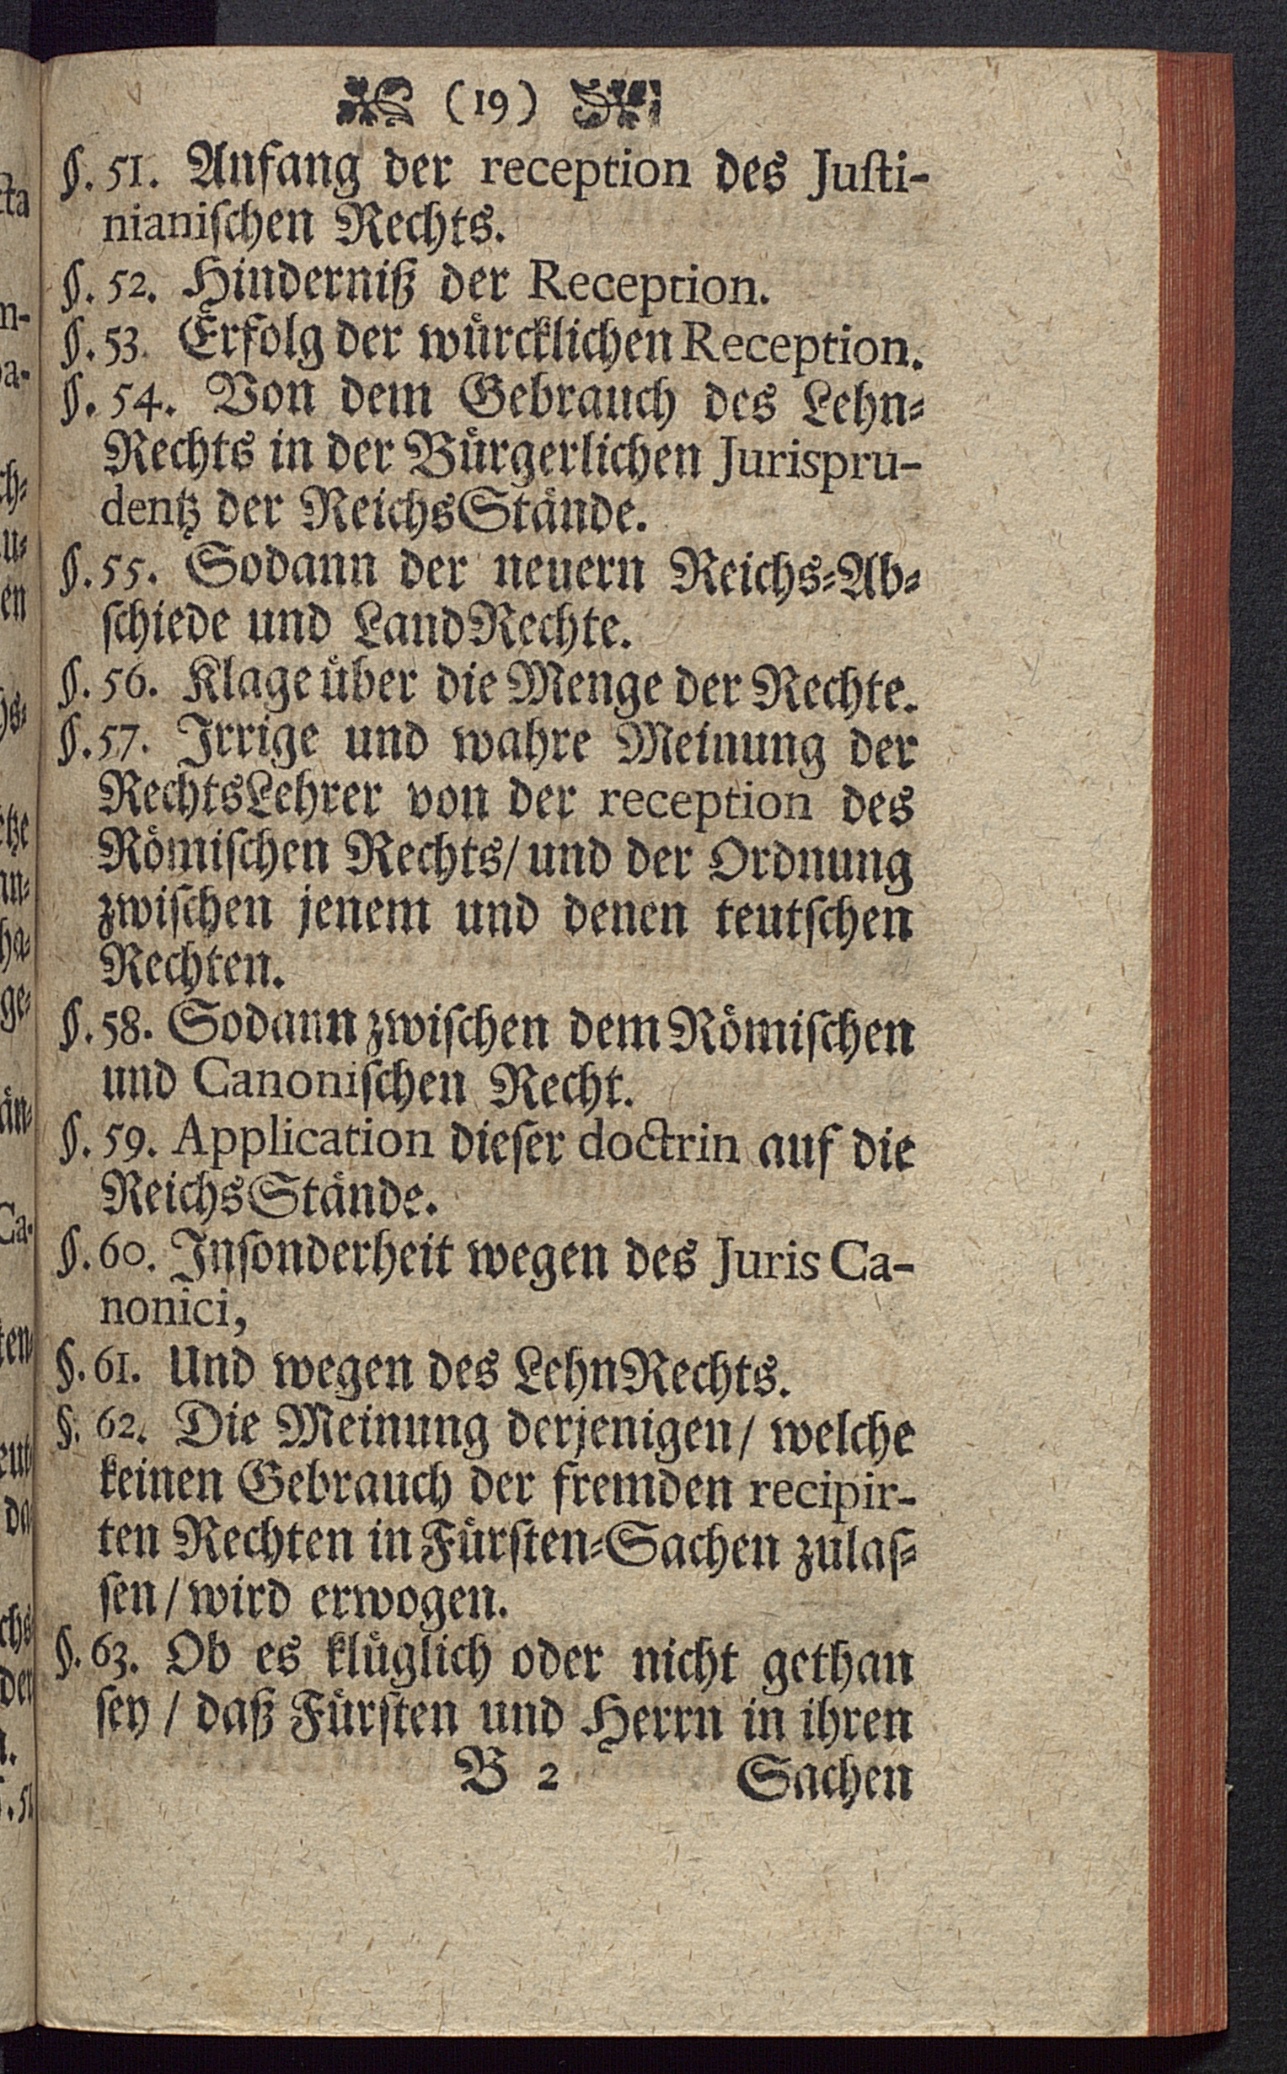 (19)
§. 51. Anfang der reception des Justi-
nianischen Rechts.
§. 52. Hinderniß der Reception.
§. 53. Erfolg der würcklichen Reception.
§. 54. Von dem Gebrauch des Lehn-
Rechts in der Bürgerlichen Jurispru-
dentz der ReichsStände.
§. 55. Sodann der neuern Reichs-Ab-
schiede und LandRechte.
§. 56. Klage über die Menge der Rechte.
§. 57. Irrige und wahre Meinung der
RechtsLehrer von der reception des
Römischen Rechts/ und der Ordnung
zwischen jenem und denen teutschen
Rechten.
§. 58. Sodann zwischen dem Römischen
und Canonischen Recht.
§. 59. Application dieser doctrin auf die
ReichsStände.
§. 60. Insonderheit wegen des Juris Ca-
nonici,
§. 61. Und wegen des LehnRechts.
§. 62. Die Meinung derjenigen/ welche
keinen Gebrauch der fremden recipir-
ten Rechten in Fürsten-Sachen zulas-
sen/ wird erwogen.
§. 63. Ob es klüglich oder nicht gethan
sey/ daß Fürsten und Herrn in ihren
B 2 Sachen